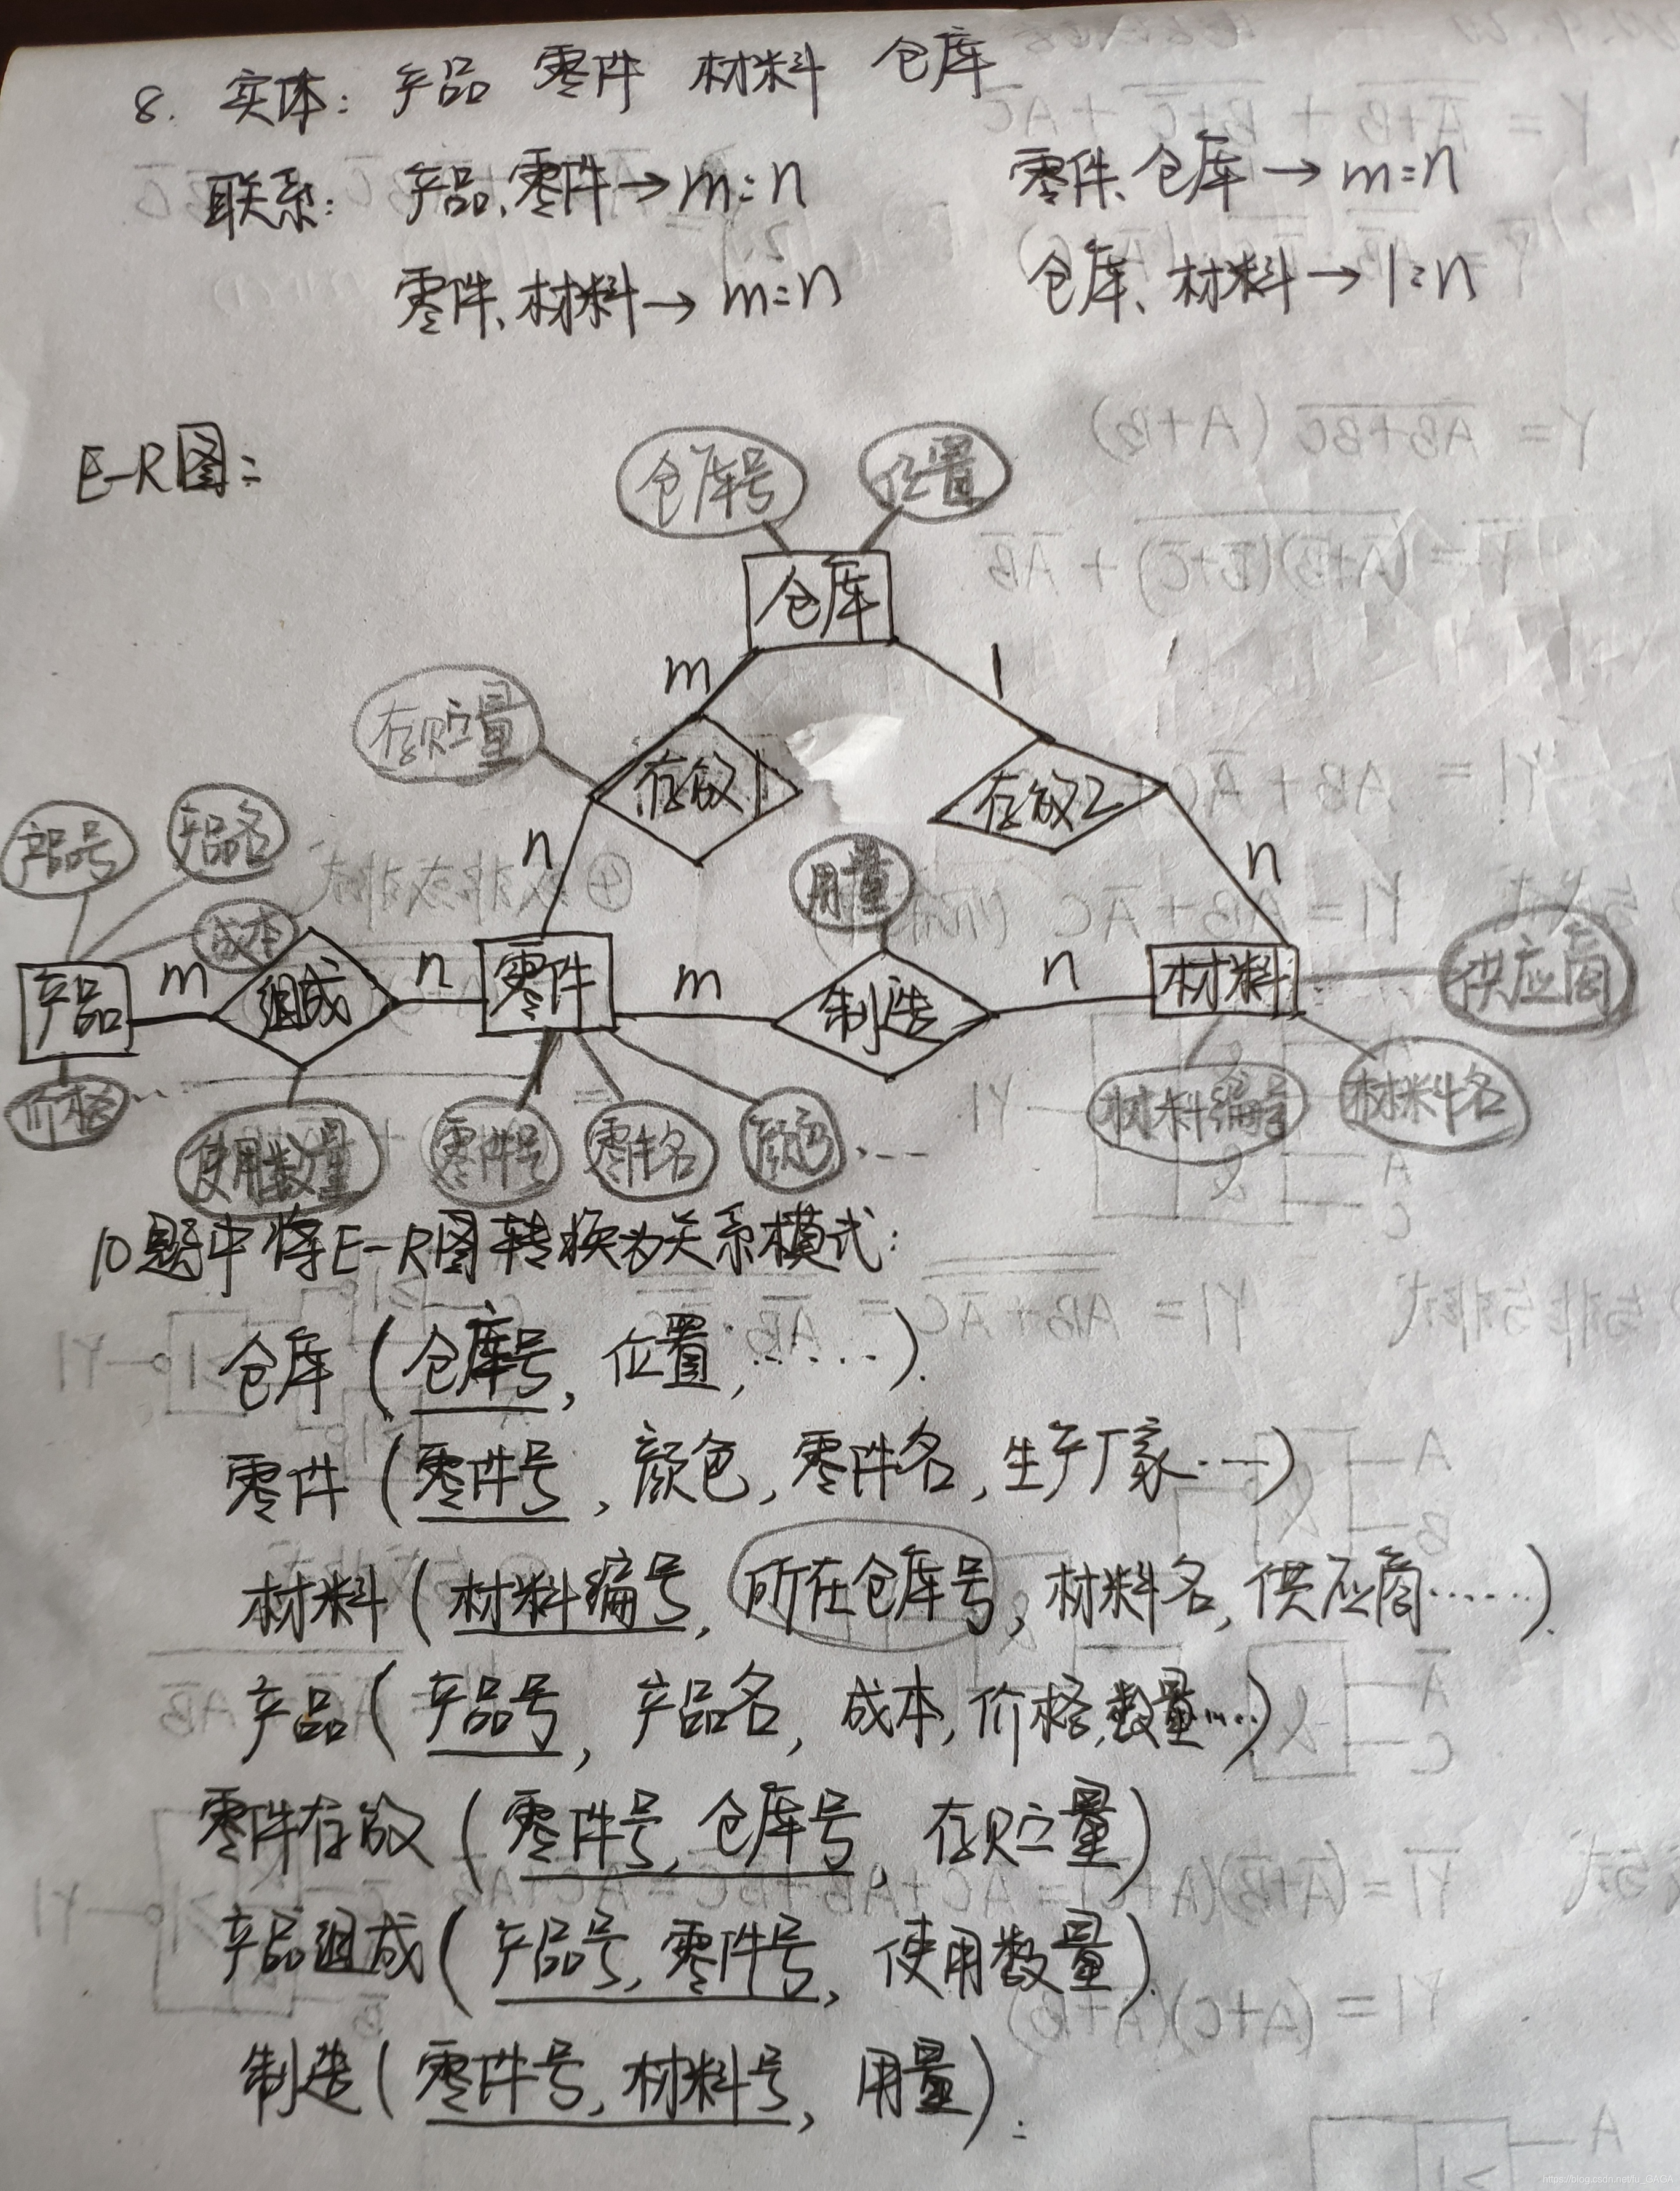 8. 实体: 产品 零件 材料 仓库
联系: 产品、零件→m:n 零件、仓库→m:n
零件、材料→m:n 仓库、材料→1:n
E-R图:
仓库号 位置
仓库
m 1
存贮量
存放1 存放2
n n
产品号 产品名
用量
成本
产品 m 组成 n 零件 m 制造 n 材料 供应商
价格…
使用数量 零件号 零件名 颜色… 材料编号 材料名
10题中将E-R图转换为关系模式:
仓库(仓库号, 位置, ……).
零件(零件号, 颜色, 零件名, 生产厂家…)
材料(材料编号, 所在仓库号, 材料名, 供应商……).
产品(产品号, 产品名, 成本, 价格, 数量…)
零件存放(零件号, 仓库号, 存贮量)
产品组成(产品号, 零件号, 使用数量).
制造(零件号, 材料号, 用量).
https://blog.csdn.net/lu_GAGA